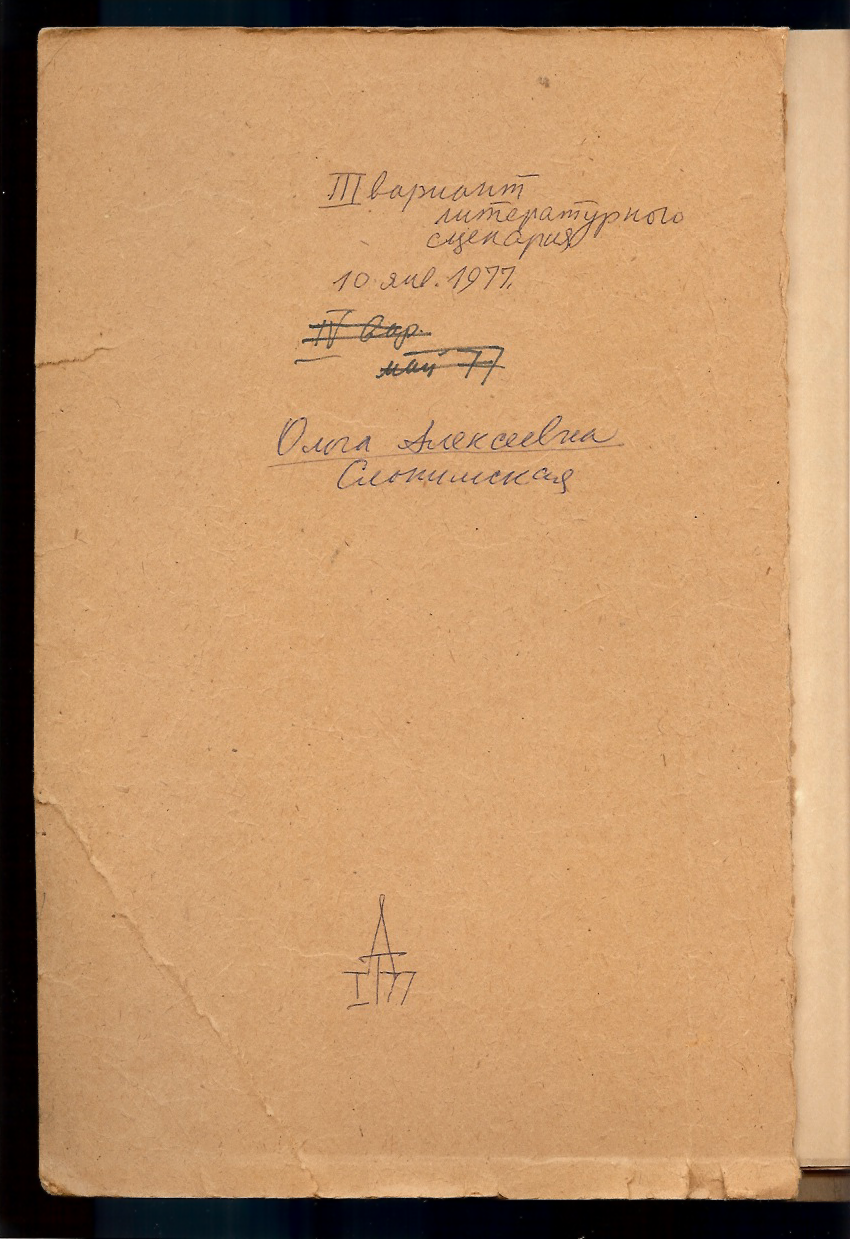 III вариант
литературного
сценария
10 янв. 1977.
IV вар.
май 77
Ольга Алексеевна
Слонимская
А
I 77